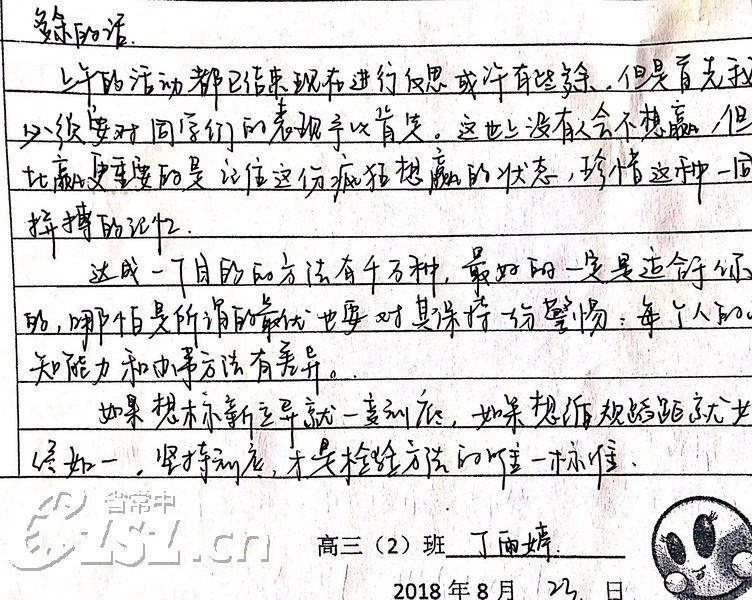 多余的话.
上午的活动都已结束现在进行反思或许有些多余,但是首先我
必须要对同学们的表现予以肯定。这世上没有人会不想赢,但
比赢更重要的是记住这份疯狂想赢的状态,珍惜这种一同
拼搏的记忆.
达成一个目的的方法有千万种,最好的一定是适合于你
的,哪怕是所谓的最优也要对其保持一份警惕:每个人的
知能力和办事方法有差异。
如果想标新立异就一直到底,如果想循规蹈距就
终如一,坚持到底,才是检验方法的唯一标准.
省常中
CZSZ.cn
高三(2)班 丁雨婷
2018年8月 23 日